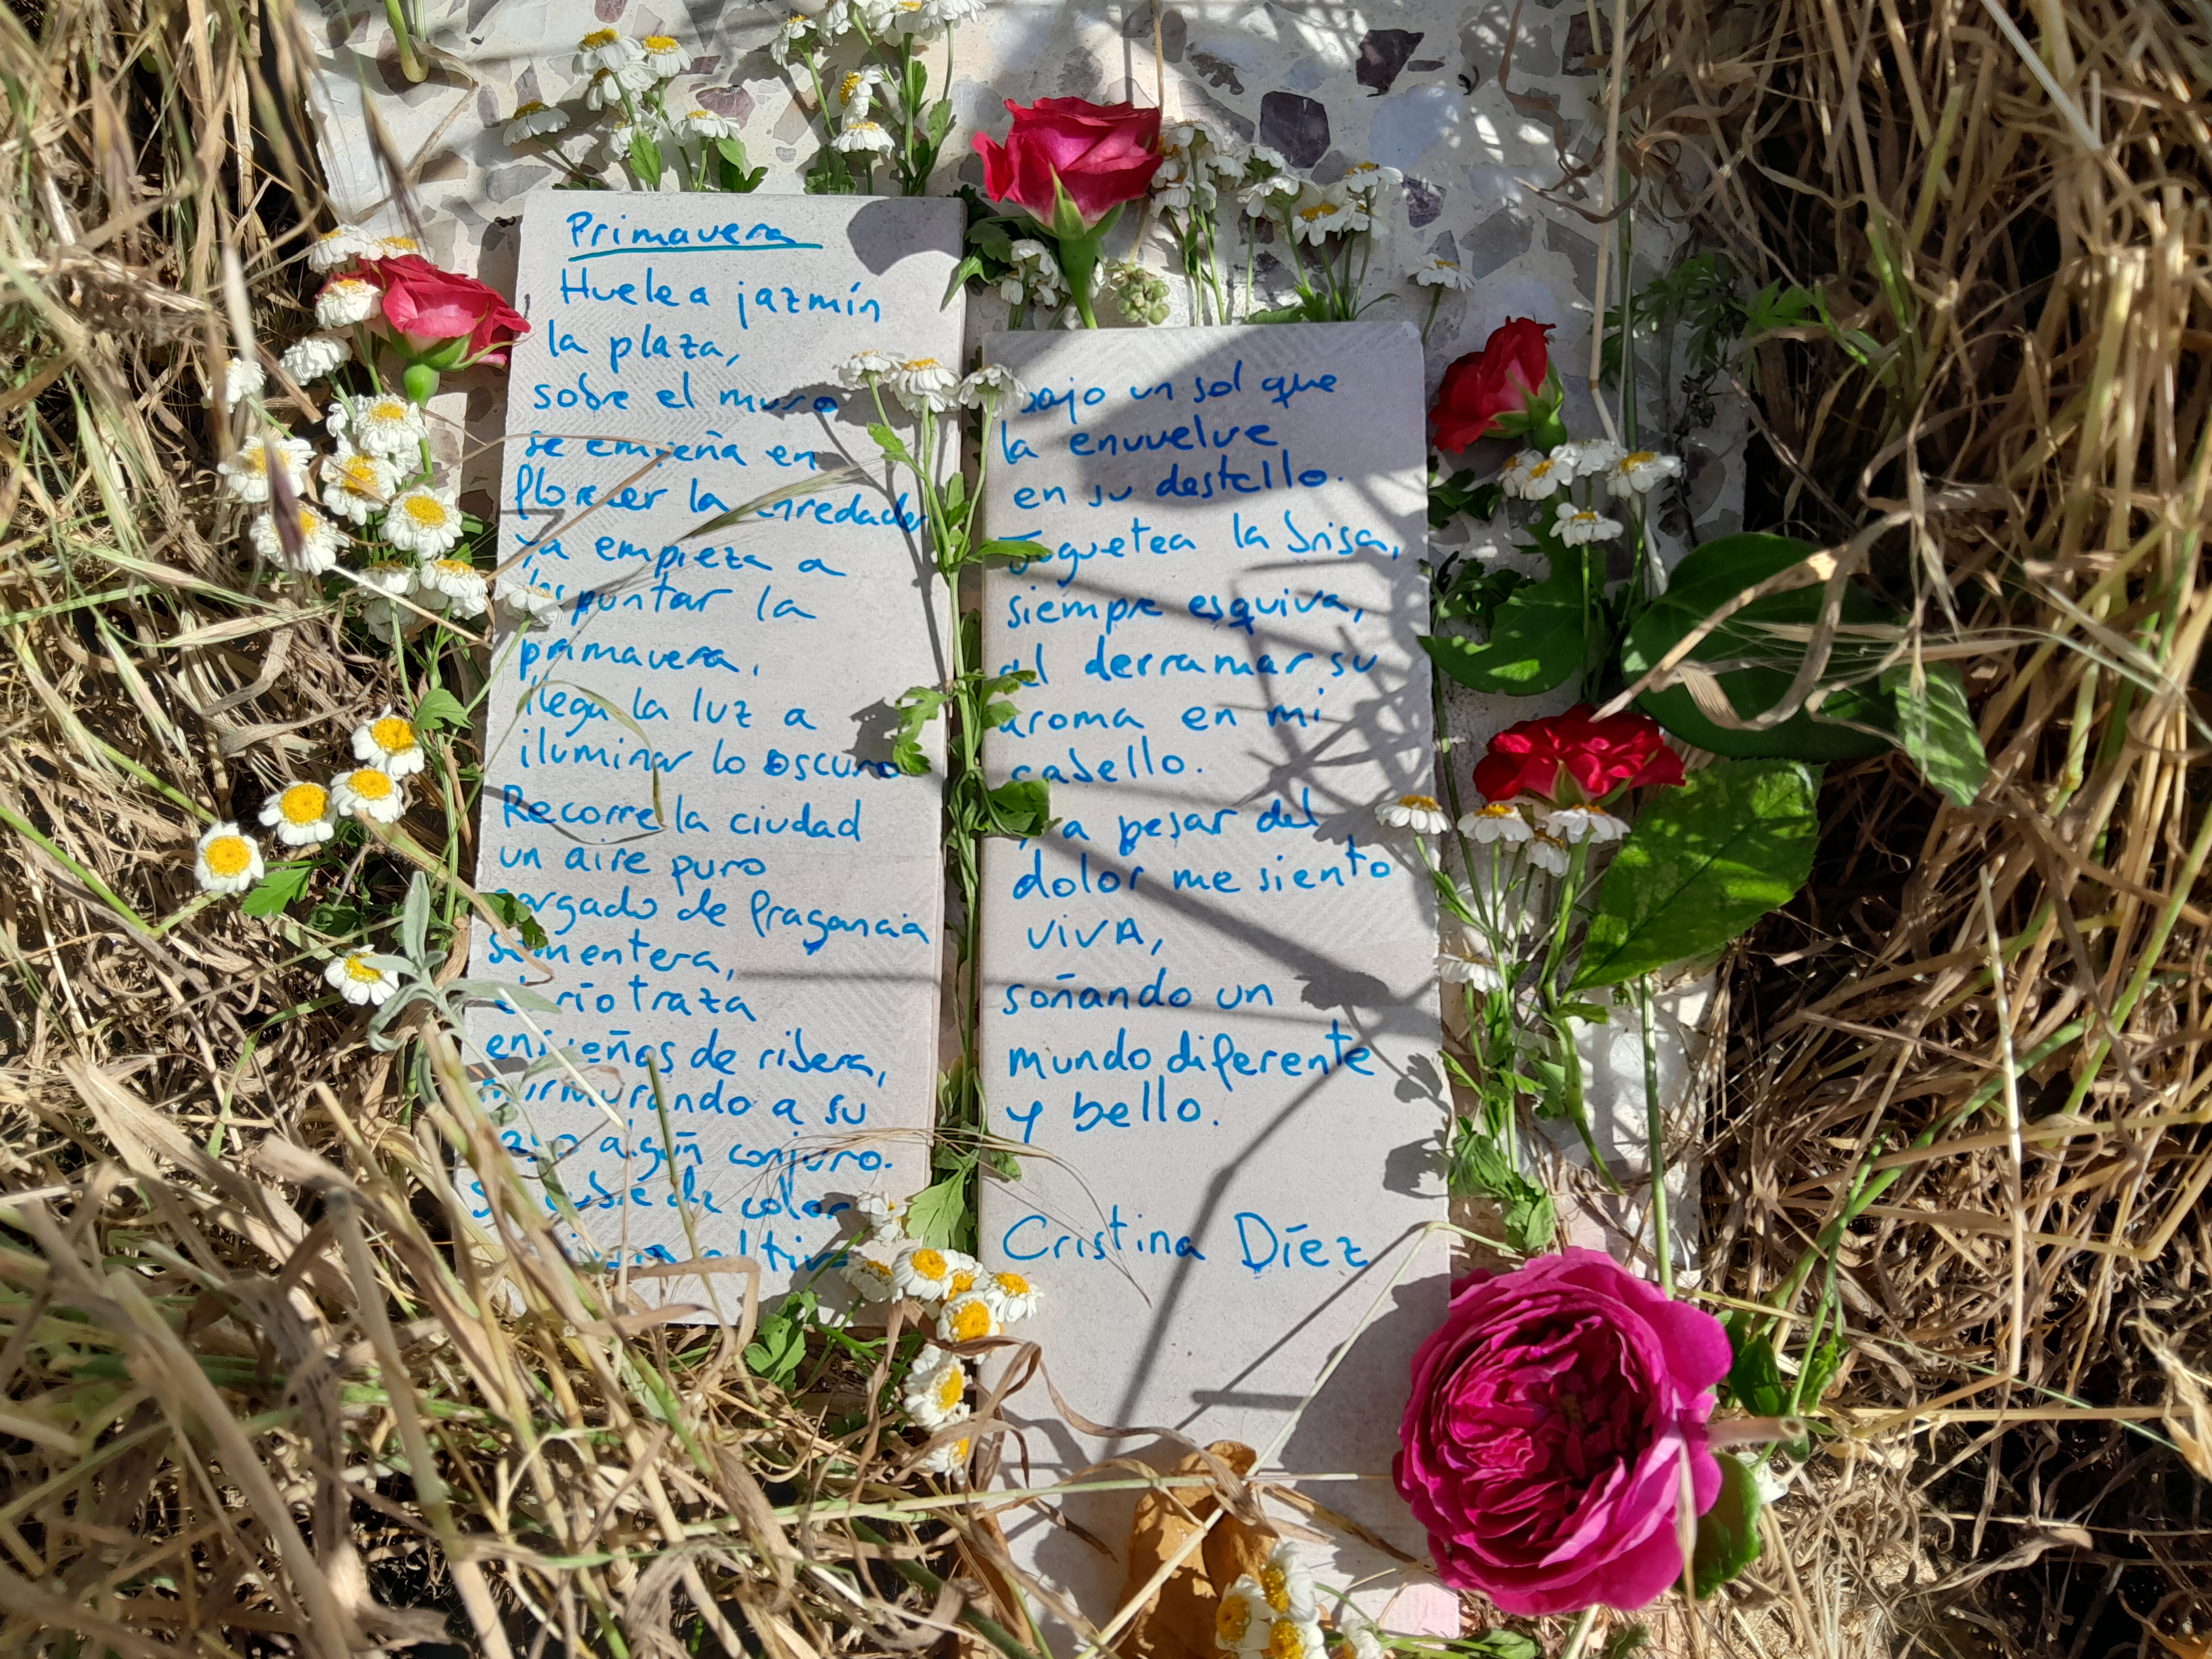 Primavera
Huele a jazmín
la plaza,
sobre el muro
se empeña en
florecer la enredadera
ya empieza a
despuntar la
primavera,
llega la luz a
iluminar lo oscuro
Recorre la ciudad
un aire puro
cargado de fragancia
sementera,
el río traza
enseñas de ribera,
murmurando a su
paso algún conjuro.
Se cubre de color
altiva
bajo un sol que
la envuelve
en su destello.
Juguetea la brisa,
siempre esquiva,
al derramar su
aroma en mi
cabello.
Y a pesar del
dolor me siento
VIVA,
soñando un
mundo diferente
y bello.
Cristina Díez